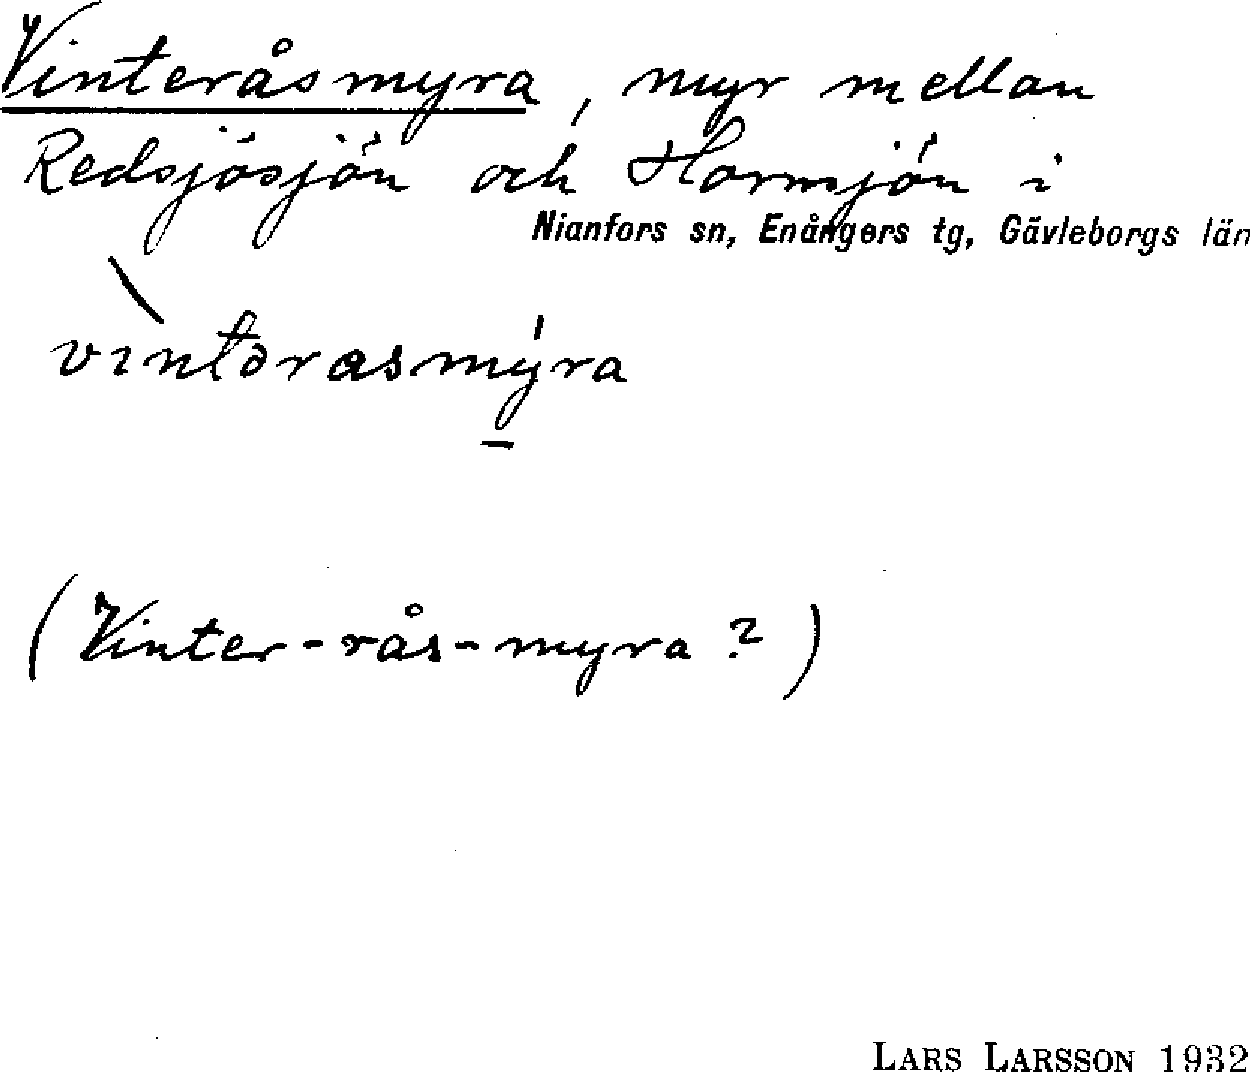 Vinteråsmyra, myr mellan
Redsjösjön och Hormsjön i
Nianfors sn, Enångers tg, Gävleborgs län
vìntərasmýra
(Vinter-rås-myra?)
LARS LARSSON 1932